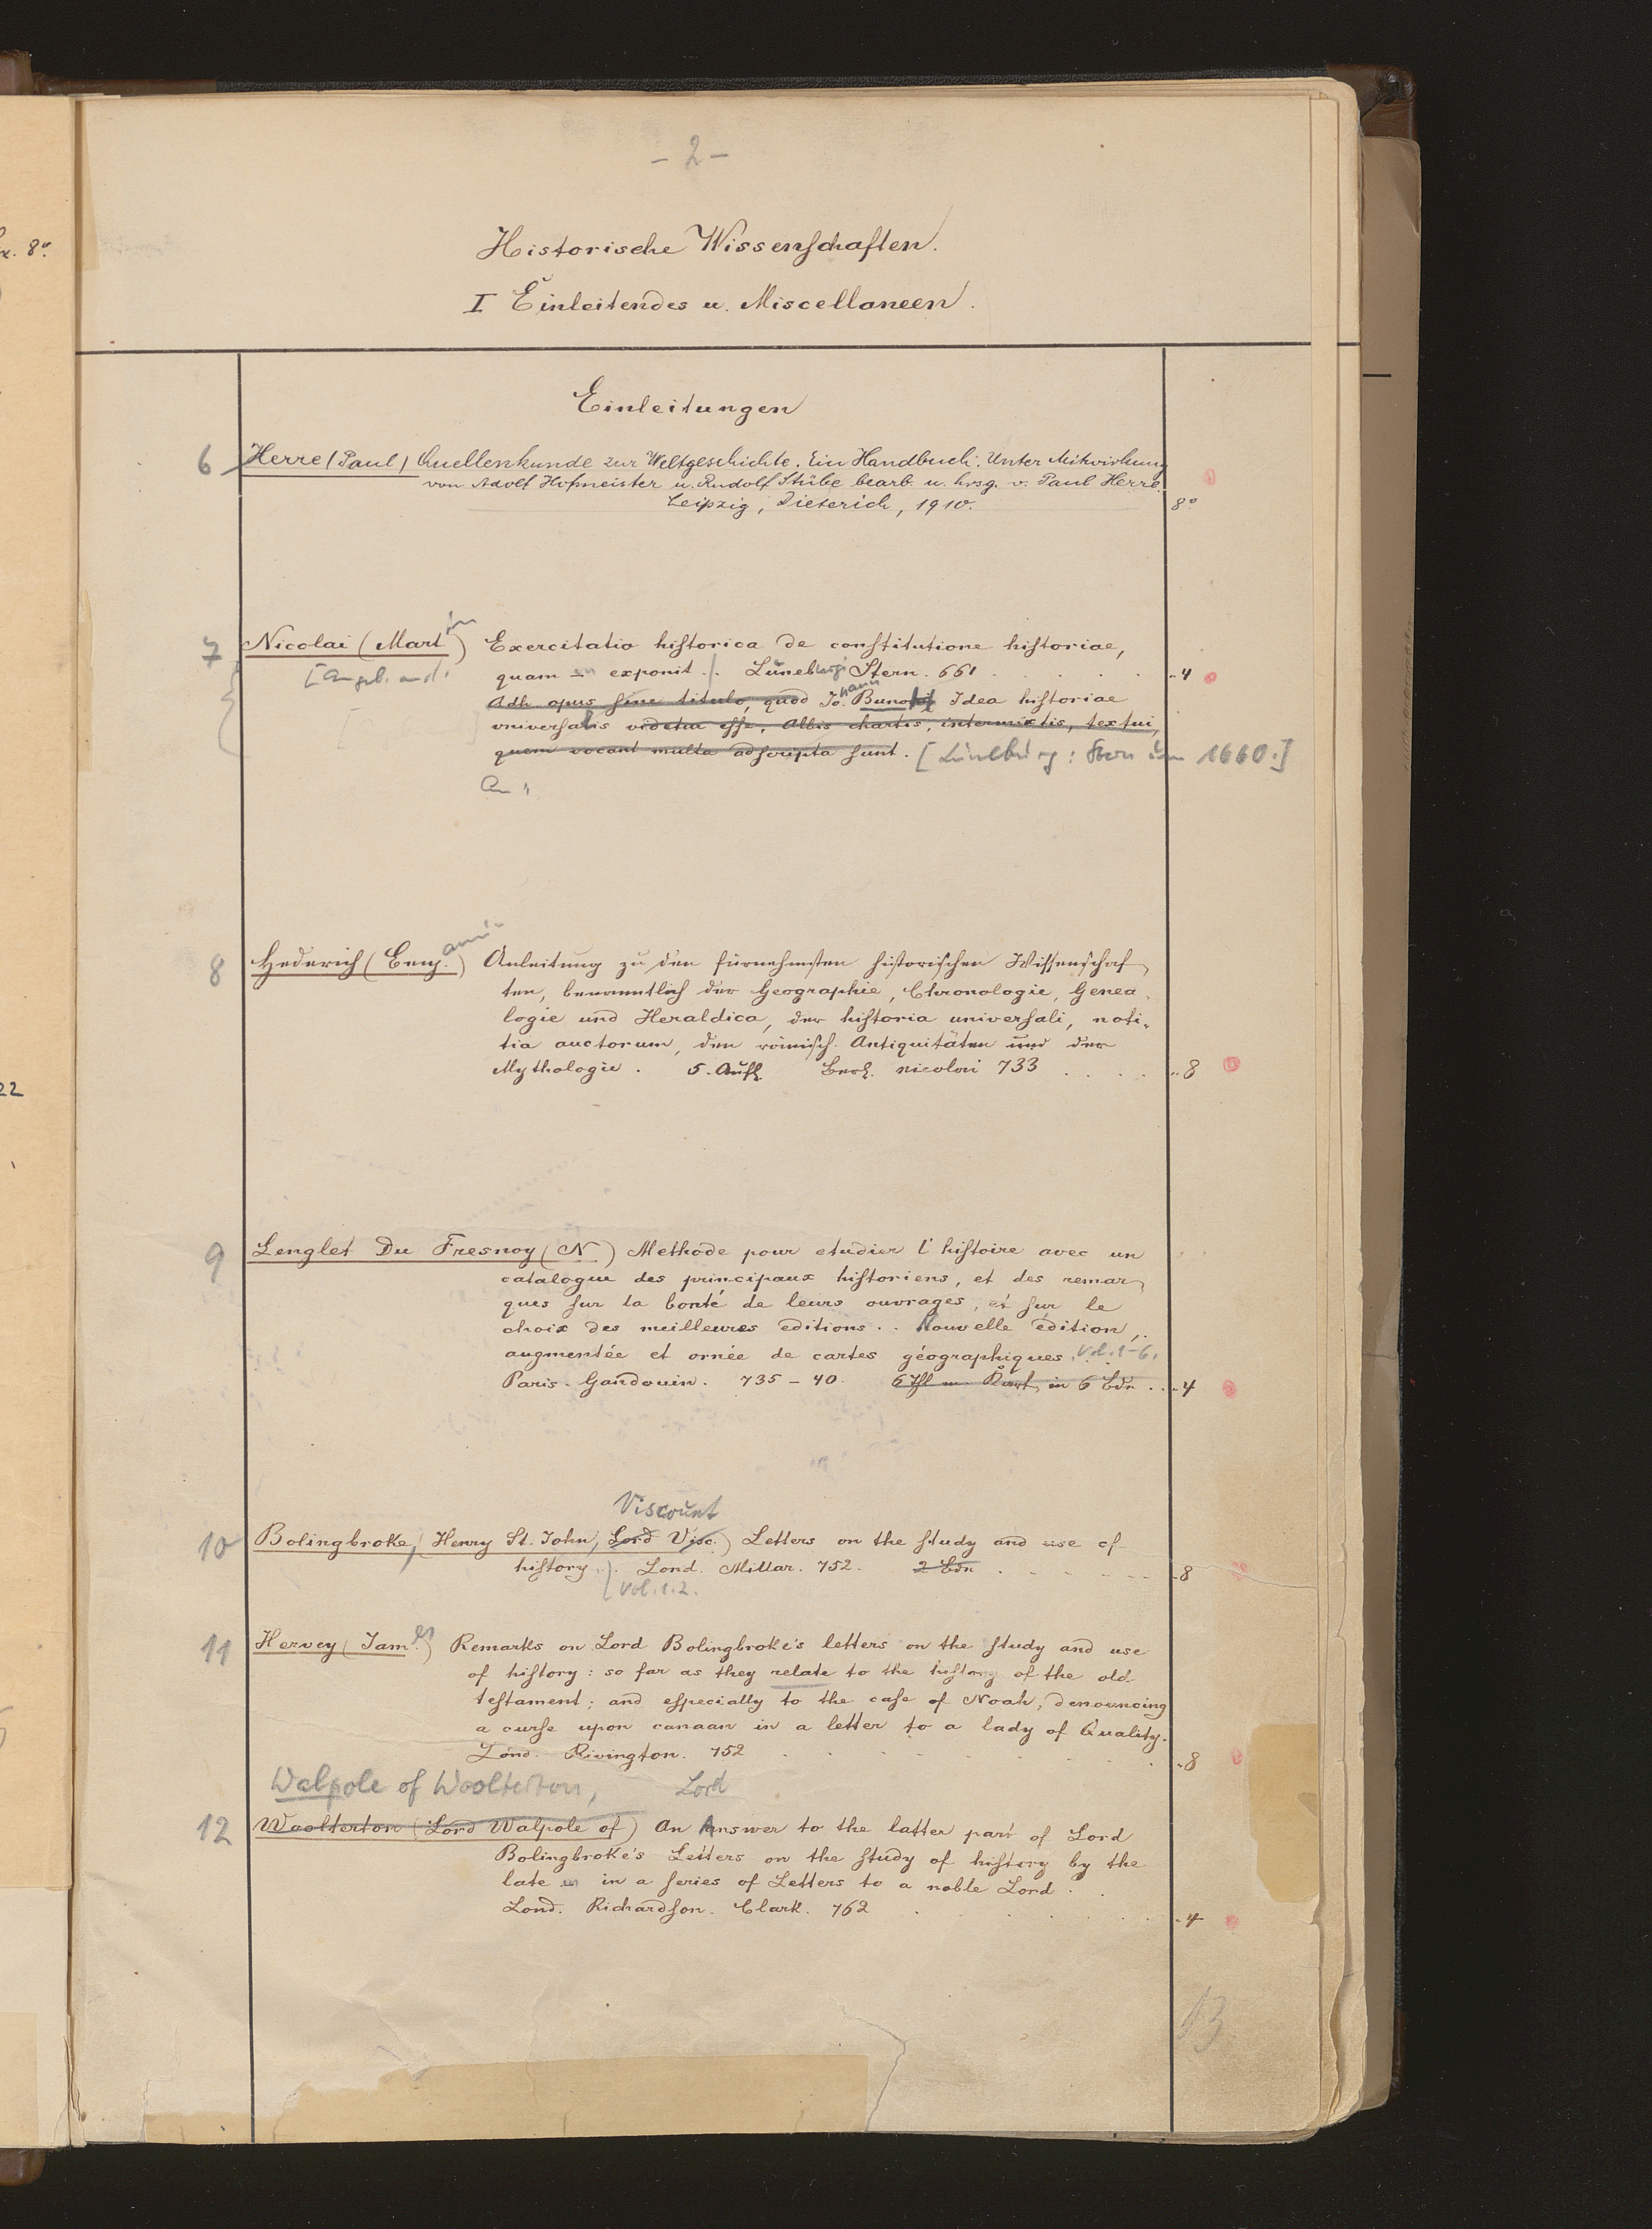 - 2 -
Historische Wissenschaften.
I Einleitendes u. Miscellaneen.
Einleitungen
6 Herre (Paul) Quellenkunde zur Weltgeschichte. Ein Handbuch. Unter Mitwirkung
von Adolf Hofmeister u. Rudolf Stübe bearb. u. hrsg. v. Paul Herre.
Leipzig, Dieterich, 1910. 8°
7 Nicolai (Martin) Exercitatio historica de constitutione historiae,
[Angeb. an:] quam exponit. Lüneburgi Stern. 661 4
Adh. opus sine titulo, quod Johann Buno Idea historiae
universalis videtur esse, Albis chartis, intermixtis, textui,
quem vocant multa adscripta sunt. [Lüneburg: Stern um 1660.]
8 Hederich (Benjamin) Anleitung zu den fürnehmsten historischen Wissenschaf
ten, benanntlich der Geographie, Chronologie, Genea
logie und Heraldica, der historia universali, noti-
tia auctorum, den römisch. Antiquitäten und der
Mythologie. 5. Aufl. Berl. Nicolai 733 8
9 Lenglet Du Fresnoy (N) Methode pour etudier l'histoire avec un
catalogue des principaux historiens, et des remar
ques sur la bonté de leurs ouvrages, et sur le
choix des meilleures editions.. Nouvelle édition,
augmentée et ornée de cartes géographiques. Vol. 1-6.
Paris. Gandouin. 735 - 40. in 6 Bdn 4
Viscount
10 Bolingbroke, (Henry St. John, Lord Visc.) Letters on the study and use of
history. Lond. Millar. 752. 2 Bdn 8
Vol. 1.2.
11 Hervey (James) Remarks on Lord Bolingbroke's letters on the study and use
of history: so far as they relate to the history of the old
testament; and especially to the case of Noah, denouncing
a curse upon canaan in a letter to a lady of Quality.
Lond. Rivington. 752 8
Walpole of Woolterton, Lord
12 Woolterton (Lord Walpole of) An Answer to the latter part of Lord
Bolingbroke's Letters on the study of history by the
late in a series of Letters to a noble Lord.
Lond. Richardson. Clark. 762 4
13